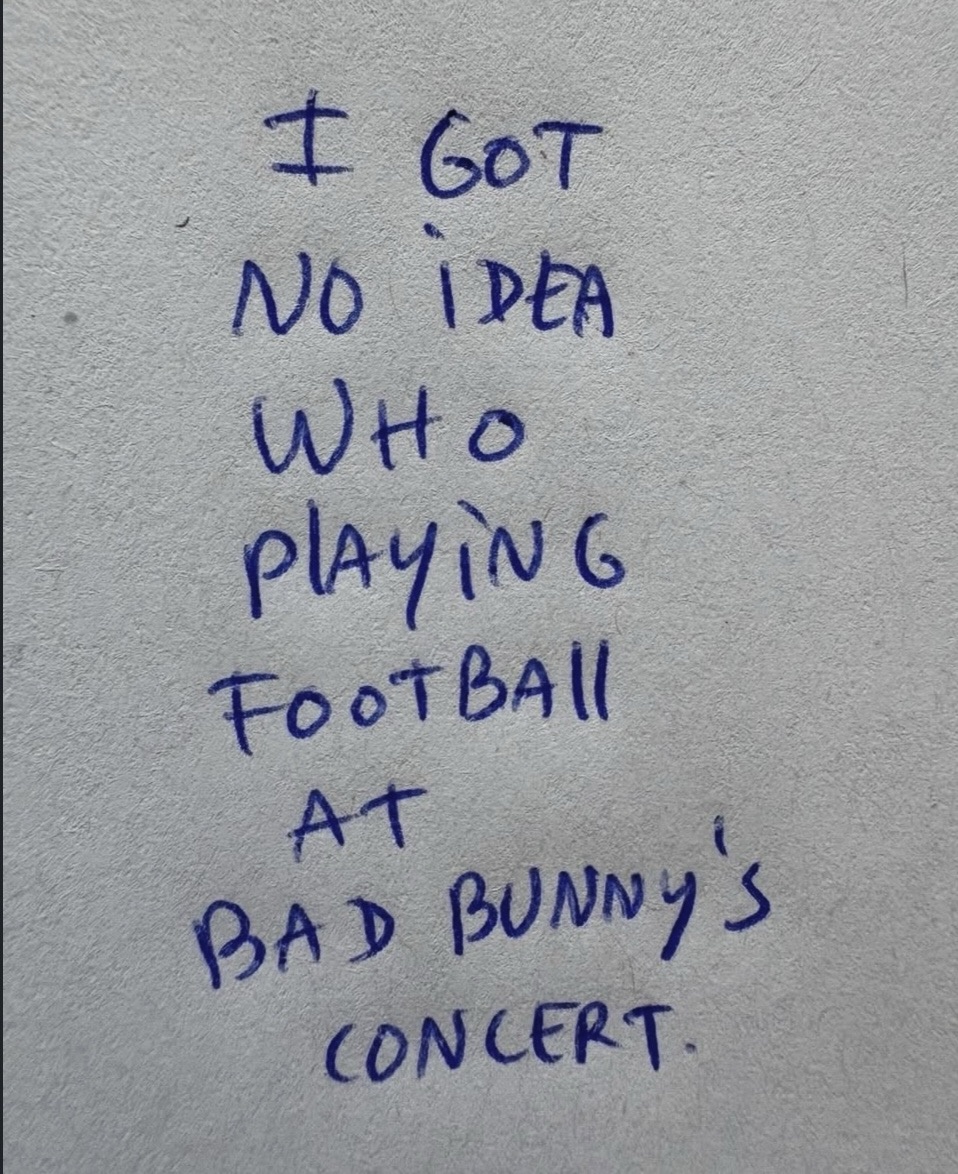 I GOT
NO iDEA
WHO
PlAYiNG
FOOTBAll
AT
BAD BUNNY'S
CONCERT.